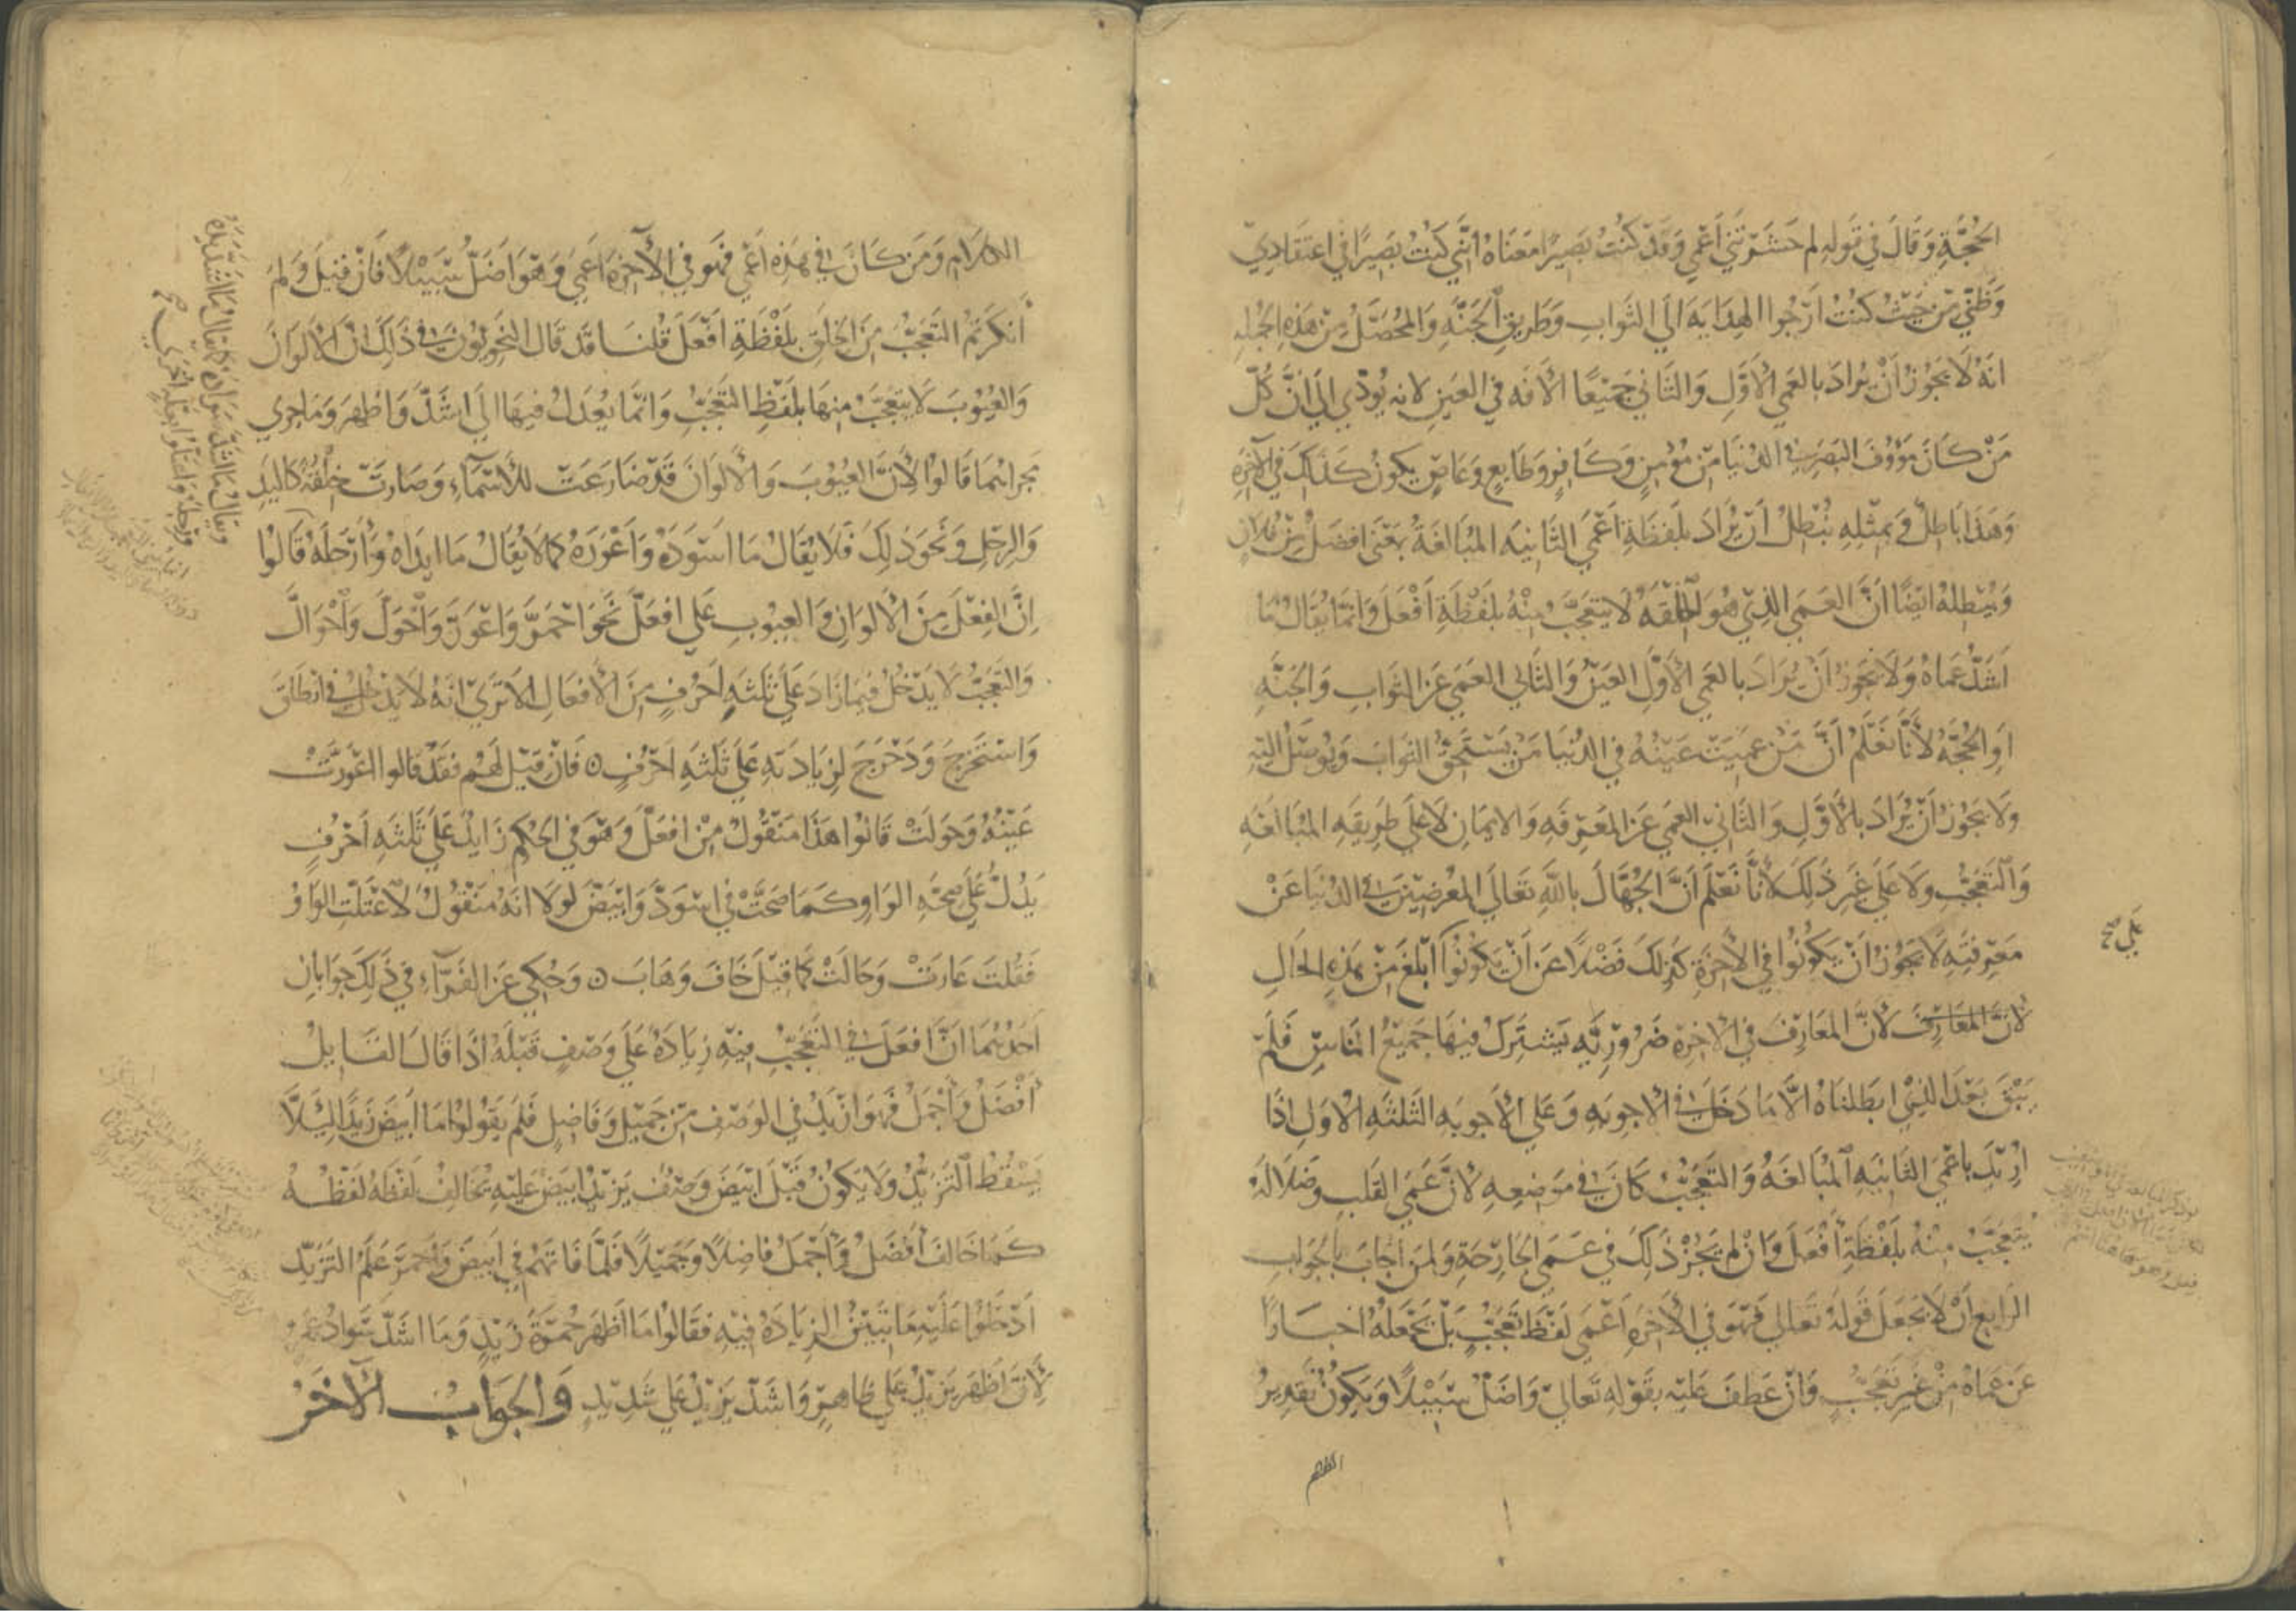 الحُجَّةِ وَقَالَ فِي قَولِهِ لِمَ حَشَرْتَنِي أَعْمي وَقَدْ كُنْتُ بَصِيرًا مَعْنَاهُ انَّنِي كُنْتُ بَصِيرًا فِي اعتقَادِيْ
وَظَنِّي مِنْ حَيْثُ كُنْتُ ارْجُوا الهِدَايَةَ الَي الثَّوابِ وَطَرِيقِ الجَنَّةِ وَالمُحَصَّلُ مِنْ هَذِهِ الجُمْلَةِ
انَهُ لَا يَجُوزُ انْ يُرَادَ بالعَمي الأَوَّلِ وَالثَّانِي جَمِيْعًا الأَفَه فِي العَيْنِ لانه يُودّي الي انَّ كُلّ
مَنْ كَانَ مَؤُوْفَ البَصَرِ فِي الدُّنْيَا مِنْ مُؤْمِنٍ وَكَافِرٍ وَطَايعٍ وَعَاصٍ يكونُ كَذَلكَ فِي الآخِرَةِ
وَهَذَا بَاطِلٌ وَبمثْلِهِ نُبْطِلُ انْ يُرَادَ بلَفْظَةِ اعْمَي الثَّانِيَه المُبَالغَةُ بمَعْنَي افضَلُ مِنْ فُلانٍ
وَيُبْطِلهُ ايْضًا انَّ العَمَي الذِيْ هُوَ الخِلْقَةُ لَا يتعَجَّبُ مِنْهُ بلفْظَةِ أَفْعَلَ وَانمَّا يُقَالُ مَا
اشَدَّ عَمَاهُ وَلَا يَجُوزُ انْ يُرَادَ بالعَمي الأَوَّلِ العَيْنُ وَالثَّانِي العَمَي عَنِ الثوَابِ وَالجَنَّةِ
اوِ الحُجَّةِ لأَنَّا نَعْلَمُ انَّ مَنْ عَمِيَتْ عَيْنُهُ فِي الدُنْيَا مَنْ يَسْتَحِقُّ الثوَابَ وَيُوصَلُ اليْهِ
ولَا يَجُوزُ انْ يُرَادَ بالأَوَّلِ وَالثَّانِي العَمي عَنِ المَعْرِفَهِ وَالايمَانِ لَا علَي طَرِيقَهِ المُبَالغَهِ
وَالتعَجُّبِ ولا عَلَي غَيرِ ذلِكَ لأنَّا نَعْلَمُ انَّ الجُهَّالَ باللَّهِ تَعَالَي المُعْرضِيْنَ فِي الدُنْيَا عَنْ
مَعْرِفتِهِ لَا يَجُوزُ انْ يَكُونُوا فِي الأخِرَةِ كذلكَ فَضْلًا عَنْ انْ يَكونُوا ابْلغَ مِنْ هَذِهِ الحَالِ
لأنَّ المعَارِفَ لأنَّ المعَارِفَ فِي الاخِرَةِ ضَرُورِيَّه يَشْتَرِكُ فيهَا جَمِيْعُ النَاسِ فَلَمْ
يَبْقَ بَعْدَ الذِيْ ابطلنَاهُ الَّا مَا دَخَلَ فِي الاجوِبَهِ وَعَلي الأَجوبه الثَلثَهِ الأوَلِ اذَا
ارِيْدَ باعْمَي الثانِيَهِ المُبَالغَهُ وَالتعَجُّبُ كَانَ فِي مَوضِعِهِ لأنَّ عَمَي القَلبِ وضَلالَهُ
يُتعَجَّبُ مِنْهُ بلَفْظَةِ أَفْعَلَ وَانْ لَمْ يَجُزْ ذَلِكَ فِي عَمَي الجَارِحَةِ وَلِمَنْ أَجَابَ بالجَوَابِ
الرَابعِ انْ لَا يَجعَلَ قَولهُ تعَالي فَهْوَ فِي الأَخِرَهِ أَعْمَي لَفْظَ تعَجُّبٍ بَلْ يَجْعَلهُ اخبَارًا
عَنْ عَمَاهُ مِنْ غَيرِ تعَجُّبٍ وَانْ عَطفَ عَليْهِ بقَوْلِهِ تَعَالي وَاضَلُّ سَبِيْلًا وَيَكونُ تقدِيرُ
بَلَي صح
الكلام
الكلام وَمَن كَانَ فِي هَذِهِ اعْمي فَهوَ فِي الآخِرَةِ اعمي وَهْوَ اضَلُّ سَبِيْلًا فَانْ قِيلَ وَلِمَ
أَنكَرْتُمُ التعَجُّبَ مِنَ الخِلَقِ بلَفْظَةِ افْعَلَ قُلنَا قَدْ قَالَ النَحْوِيُّونَ فِي ذَلِكَ انَّ الأَلوَانَ
وَالعُيُوبَ لَا يتعَجَّبُ منهَا بلَفْظِ التعَجُّبِ وَانمَّا يُعْدَلُ فيهَا الَي اشَدَّ وَاظهَرَ وَمَا جري
مجراهُمَا قَالوُا لأنَّ العُيُوْبَ وَالأَلوَانَ قَدْ ضَارَعَتْ للأَسْمَاءِ وَصَارَتْ خِلْقَةً كاليَدِ
وَالرِجْلِ وَنَحوَ ذلِكَ فَلا يُقَالُ مَا اسْوَدَهُ وَاعْوَرَهُ كمَا لا يُقَالُ مَا ايدَاهُ وَارْجَلَهُ قَالوُا
انَّ الفِعْلَ مِنَ الأَلوَانِ وَالعيُوبِ عَلي افعَلَّ نَحوَ احْمَرَّ وَاعْوَرَّ وَاحْوَلَّ وَاحْوَالَّ
وَالتعَجُّبُ لَا يَدْخُلُ فِيمَا زَادَ عَلَي ثَلثةِ احْرُفٍ مِنَ الأَفعَالِ الا تَرَيْ انَهُ لا يَدْخُلُ فِي انطَلقَ
وَاسْتَخرَجَ وَدَحْرَجَ لِزيَادَتهِ عَلَي ثَلثهِ احْرُفٍ ه فَانْ قِيْلَ لَهُمْ فقَدْ قالوا اعْوَرَّتْ
عَيْنُهُ وَحَولَتْ قَالوا هَذَا مَنقُولٌ مِنْ افعَلَّ وَهْوَ فِي الحُكمِ زَايدٌ عَلَي ثَلثهِ احْرُفٍ
يَدُلُّ عَلَي صِحَّهِ الوَاوِ كَمَا صَحَّتْ فِي اسْوَدَّ وَابيَضَّ لَولَا انهُ مَنقُولٌ لاعْتلَّتِ الوَاوُ
فقُلتَ عَارَتْ وَحَالَتْ كمَا قِيلَ خَافَ وَهَابَ ه وَحُكِي عَنِ الفَرَّاءِ فِي ذَلكَ جوَابانِ
احَدُهُمَا انَّ افعَلَ فِي التعَجُّبِ فِيْهِ زِيَادَهٌ عَلَي وَصْفٍ قَبْلَهُ اذَا قَالَ القَايلُ
أَفْضَلُ وَأَجْمَلُ فَهوَ ازْيَدُ فِي الوَصْفِ مِنْ جَمِيْلٍ وَفَاضِلٍ فَلَمْ يَقُولوُا مَا ابيَضَ زَيدًا لِئَلَّا
يَسْقُطَ التزَيُّدُ وَلا يَكونُ قَبْلَ ابيَضَ وَصْفٌ يَزِيْدُ ابيَضُ عَليْهِ يُخَالِفُ لَفْظُهُ لفْظَهُ
كمَا خَالفَ أَفضَلُ وَأَجْمَلُ فَاضِلًا وَجَمِيْلًا فَلَمَّا فَاتهُمْ فِي ابيَضَ وَاحمَرَ عَلَمُ التزَيُّدِ
ادْخَلُوا عَلَيْهِ مَا تبيَّنَ الزِيَادَهُ فِيْهِ فقَالوُا مَا اظْهَرَ حُمْرَةَ زَيْدٍ وَمَا اشَدَّ سَوَادَ عَمْرٍو
لأنَّ اظهَرَ يَزِيْدُ عَلي ظاهِرٍ وَاشَدَّ يَزِيْدُ عَلي شَدِيْدٍ وَالجَوَابُ الآخَرُ